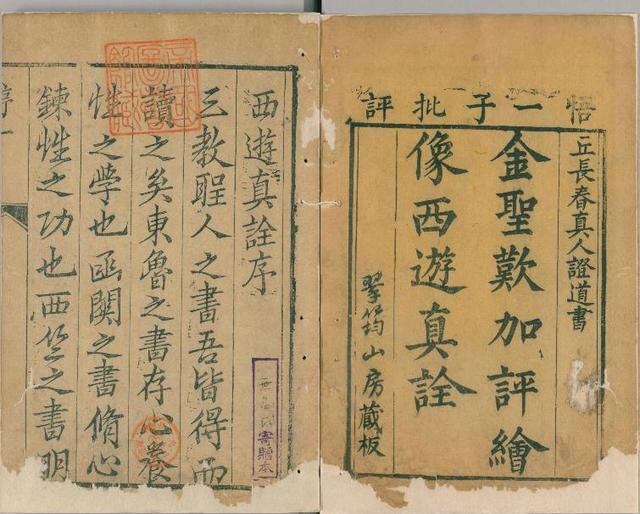 悟一子批評
丘長春真人證道書
金聖歎加評繪
像西遊真詮
翠筠山房藏板
西遊真詮序
三教聖人之書吾皆得而
讀之矣東魯之書存心養
性之學也函關之書脩心
鍊性之功也西竺之書明
序一
寄贈本